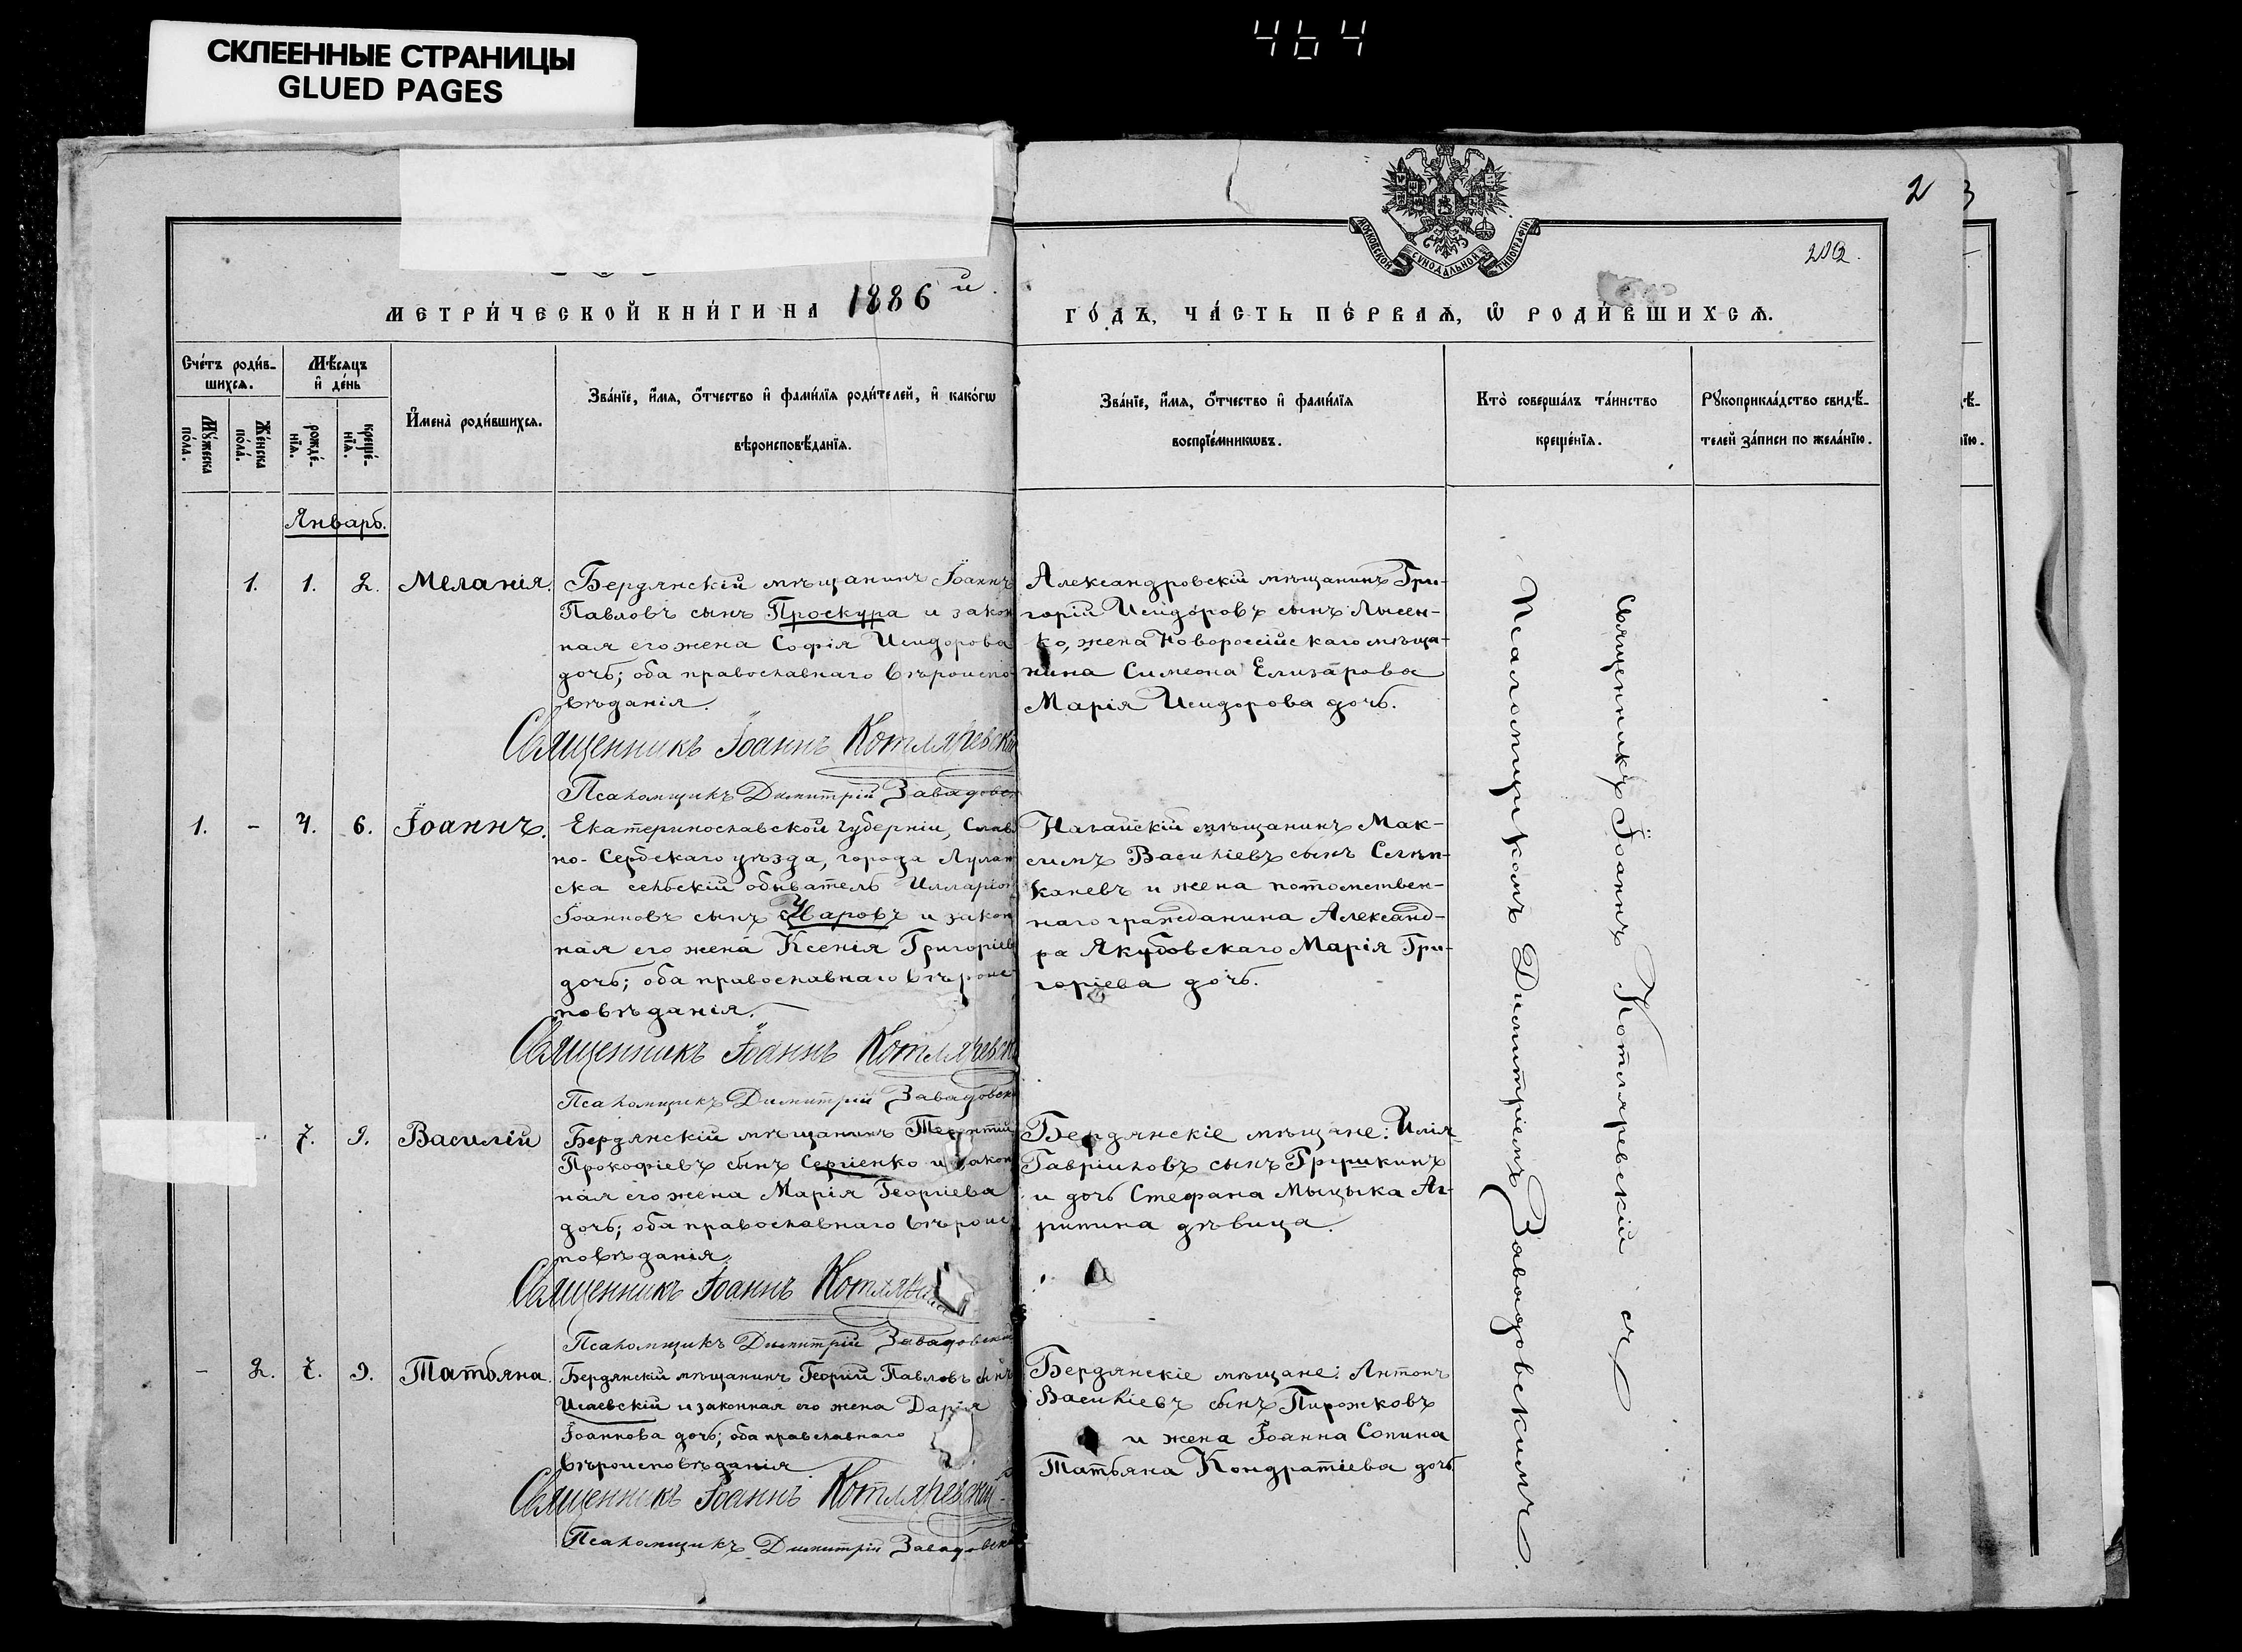 464
СКЛЕЕННЫЕ СТРАНИЦЫ
GLUED PAGES
2
3
МОСКОВСКОЙ СУНОДАЛЬНОЙ ТИПОГРАФІИ
202.
МЕТРИ́ЧЕСКОЙ КНИ́ГИ НА 1886й
ГО́ДЪ, ЧА́СТЬ ПЕ́РВАѦ, Ѽ РОДИ́ВШИХСѦ.
Сче́тъ роди́в-
шихсѧ.
Му́жеска
по́ла.
Же́нска
по́ла.
Мѣ́сѧцъ
и҆ де́нь
рожде́-
нїѧ.
креще́-
нїѧ.
И҆мена̀ роди́вшихсѧ.
Зва́нїе, и҆́мѧ, ѻ҆́тчество и҆ фами́лїѧ роди́телей, и҆ како́гѡ
вѣроисповѣ́данїѧ.
Зва́нїе, и҆́мѧ, ѻ҆́тчество и҆ фами́лїѧ
воспрїе́мникѡвъ.
Кто̀ соверша́лъ та́инство
креще́нїѧ.
Рꙋкоприкла́дство свидѣ́-
телей за́писи по жела́нїю.
Январь.
1. 1. 2. Меланія.
Бердянскій мѣщанинъ Іоаннъ
Павловъ сынъ Проскура и закон
ная его жена Софія Исидорова
дочь; оба православнаго вѣроиспо
вѣданія.
Священникъ Іоаннъ Котляревскій
Псаломщикъ Димитрій Завадовск
Александровскій мѣщанинъ Гри-
горій Исидоровъ сынъ Лысен-
ко, жена Новороссійскаго мѣща-
нина Симеона Елизарова
Марія Исидорова дочь.
1. - 4. 6. Іоаннъ.
Екатеринославской губерніи, Слав
но-Сербскаго уѣзда, города Луган
ска сельскій обыватель Илларіон
Іоанновъ сынъ Уваровъ и закон
ная его жена Ксенія Григоріев
дочь; оба православнаго вѣроис
повѣданія.
Священникъ Іоаннъ Котляревск
Псаломщикъ Димитрій Завадовск
Ногайскій мѣщанинъ Мак-
симъ Василіевъ сынъ
каневъ и жена потомствен-
наго гражданина Александ-
ра Якубовскаго Марія Гри-
горіева дочь.
7. 9. Василій
Бердянскій мѣщанинъ Терентій
Прокофіевъ сынъ Сергіенко и закон
ная его жена Марія Георгіева
дочь; оба православнаго вѣроис
повѣданія.
Священникъ Іоаннъ Котляревск
Псаломщикъ Димитрій Завадовскій
Бердянскіе мѣщане: Илія
Гавріиловъ сынъ Грушкинъ
и дочь Стефана Мыцыка Аг-
рипина дѣвица.
- 2. 7. 9. Татьяна.
Бердянскій мѣщанинъ Георгій Павловъ сынъ
Исаевскій и законная его жена Дарія
Іоаннова дочь; оба православнаго
вѣроисповѣданія
Священникъ Іоаннъ Котляревскій
Псаломщикъ Димитрій Завадовск
Бердянскіе мѣщане: Антонъ
Василіевъ сынъ Пирожковъ
и жена Іоанна Сопина
Татьяна Кондратіева дочь
Священникъ Іоаннъ Котляревскій съ
Псаломщикомъ Димитріемъ Завадовскимъ.